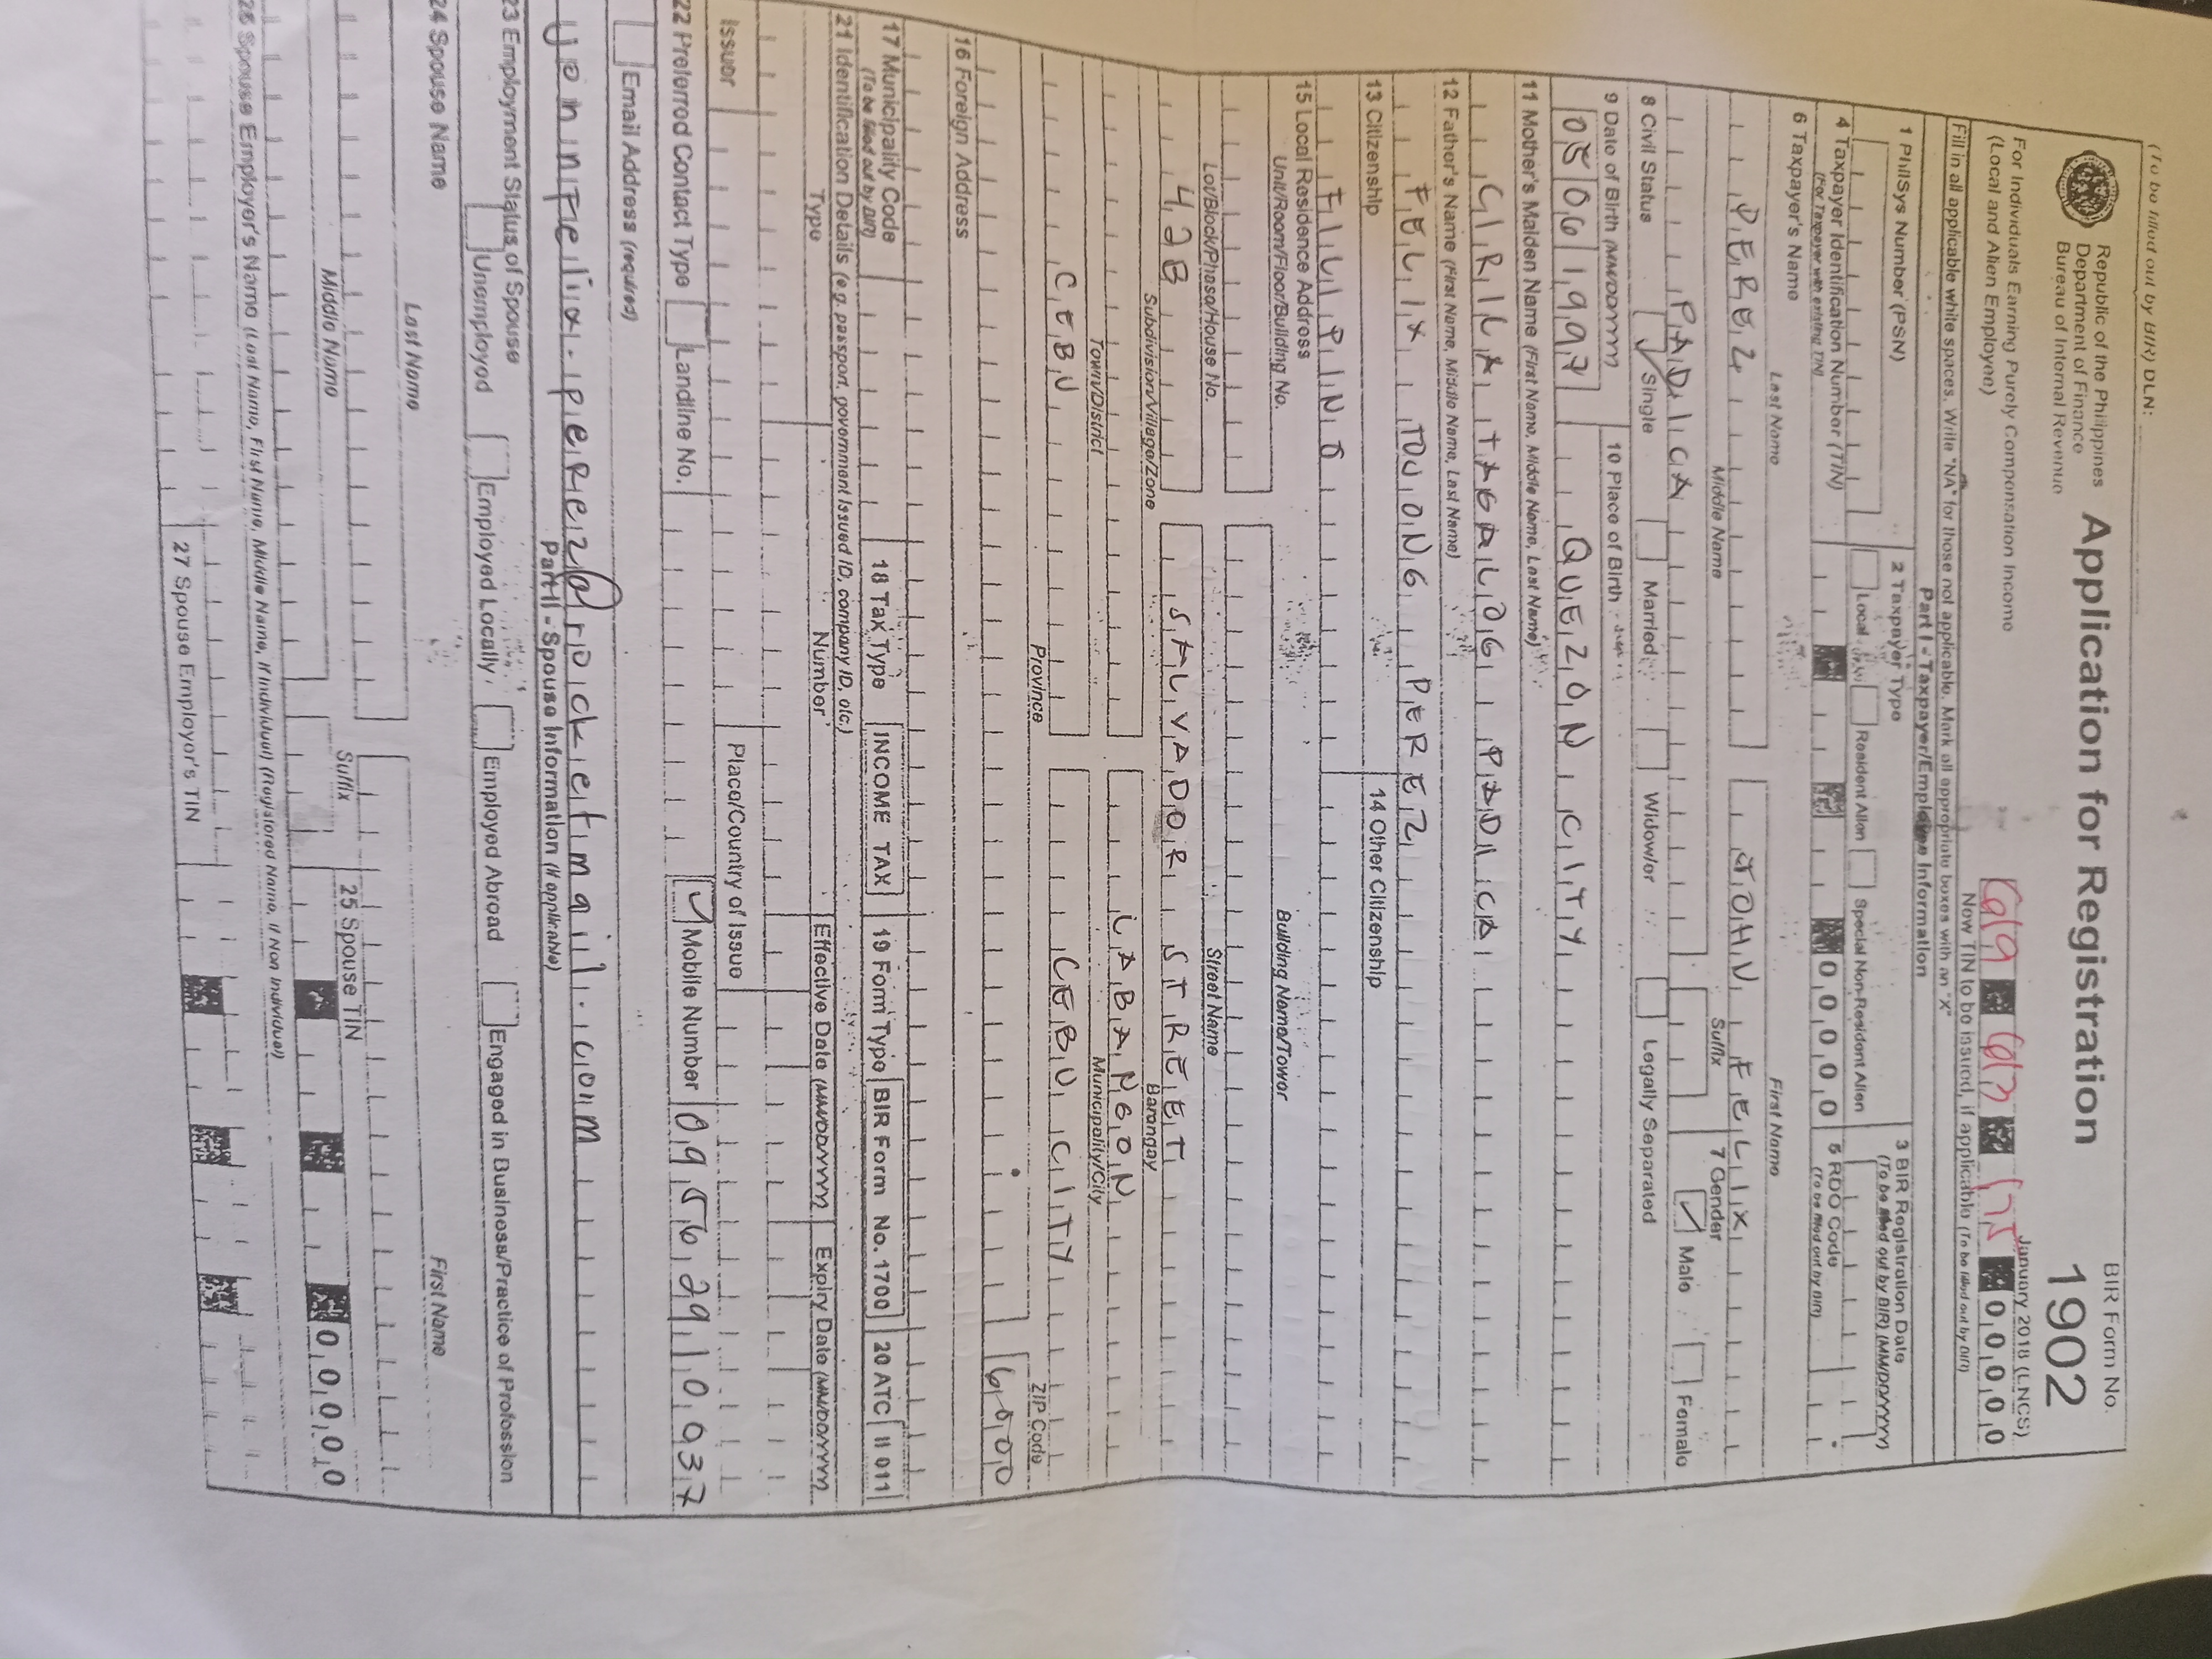 (To be filled out by BIR) DLN:
Republic of the Philippines
Department of Finance
Bureau of Internal Revenue
Application for Registration
BIR Form No.
1902
January 2018 (LNCS)
For Individuals Earning Purely Compensation Income
(Local and Alien Employee)
0 0 0 0 0
New TIN to be issued, if applicable (To be filled out by BIR)
Fill in all applicable white spaces. Write "NA" for those not applicable. Mark all appropriate boxes with an "X"
Part I - Taxpayer/Employee Information
1 PhilSys Number (PSN)
2 Taxpayer Type
3 BIR Registration Date
(To be filled out by BIR) (MM/DD/YYYY)
Local
Resident Alien
Special Non-Resident Alien
4 Taxpayer Identification Number (TIN)
(For Taxpayer with existing TIN)
0 0 0 0 0
5 RDO Code
(To be filled out by BIR)
6 Taxpayer's Name
Last Name
First Name
PEREZ
JOHN FELIX
Middle Name
Suffix
7 Gender
PADICA
Male
Female
8 Civil Status
Single
Married
Widow/er
Legally Separated
9 Date of Birth (MM/DD/YYYY)
10 Place of Birth
05061997
QUEZON CITY
11 Mother's Maiden Name (First Name, Middle Name, Last Name)
CIRILA TAGALOG PADICA
12 Father's Name (First Name, Middle Name, Last Name)
FELIX TUONG PEREZ
13 Citizenship
14 Other Citizenship
FILIPINO
15 Local Residence Address
Unit/Room/Floor/Building No.
Building Name/Tower
Lot/Block/Phase/House No.
Street Name
42B
SALVADOR STREET
Subdivision/Village/Zone
Barangay
LABANGON
Town/District
Municipality/City
CEBU
CEBU CITY
Province
ZIP Code
6000
16 Foreign Address
17 Municipality Code
(To be filled out by BIR)
18 Tax Type
INCOME TAX
19 Form Type
BIR Form No. 1700
20 ATC
II 011
21 Identification Details (e.g. passport, government issued ID, company ID, etc.)
Type
Number
Effective Date (MM/DD/YYYY)
Expiry Date (MM/DD/YYYY)
Issuer
Place/Country of Issue
22 Preferred Contact Type
Landline No.
Mobile Number
09562910937
Email Address (required)
johnfelix.perez@rocketmail.com
Part II - Spouse Information (if applicable)
23 Employment Status of Spouse
Unemployed
Employed Locally
Employed Abroad
Engaged in Business/Practice of Profession
24 Spouse Name
Last Name
First Name
Middle Name
Suffix
25 Spouse TIN
0 0 0 0 0
26 Spouse Employer's Name (Last Name, First Name, Middle Name, If Individual) (Registered Name, If Non Individual)
27 Spouse Employer's TIN